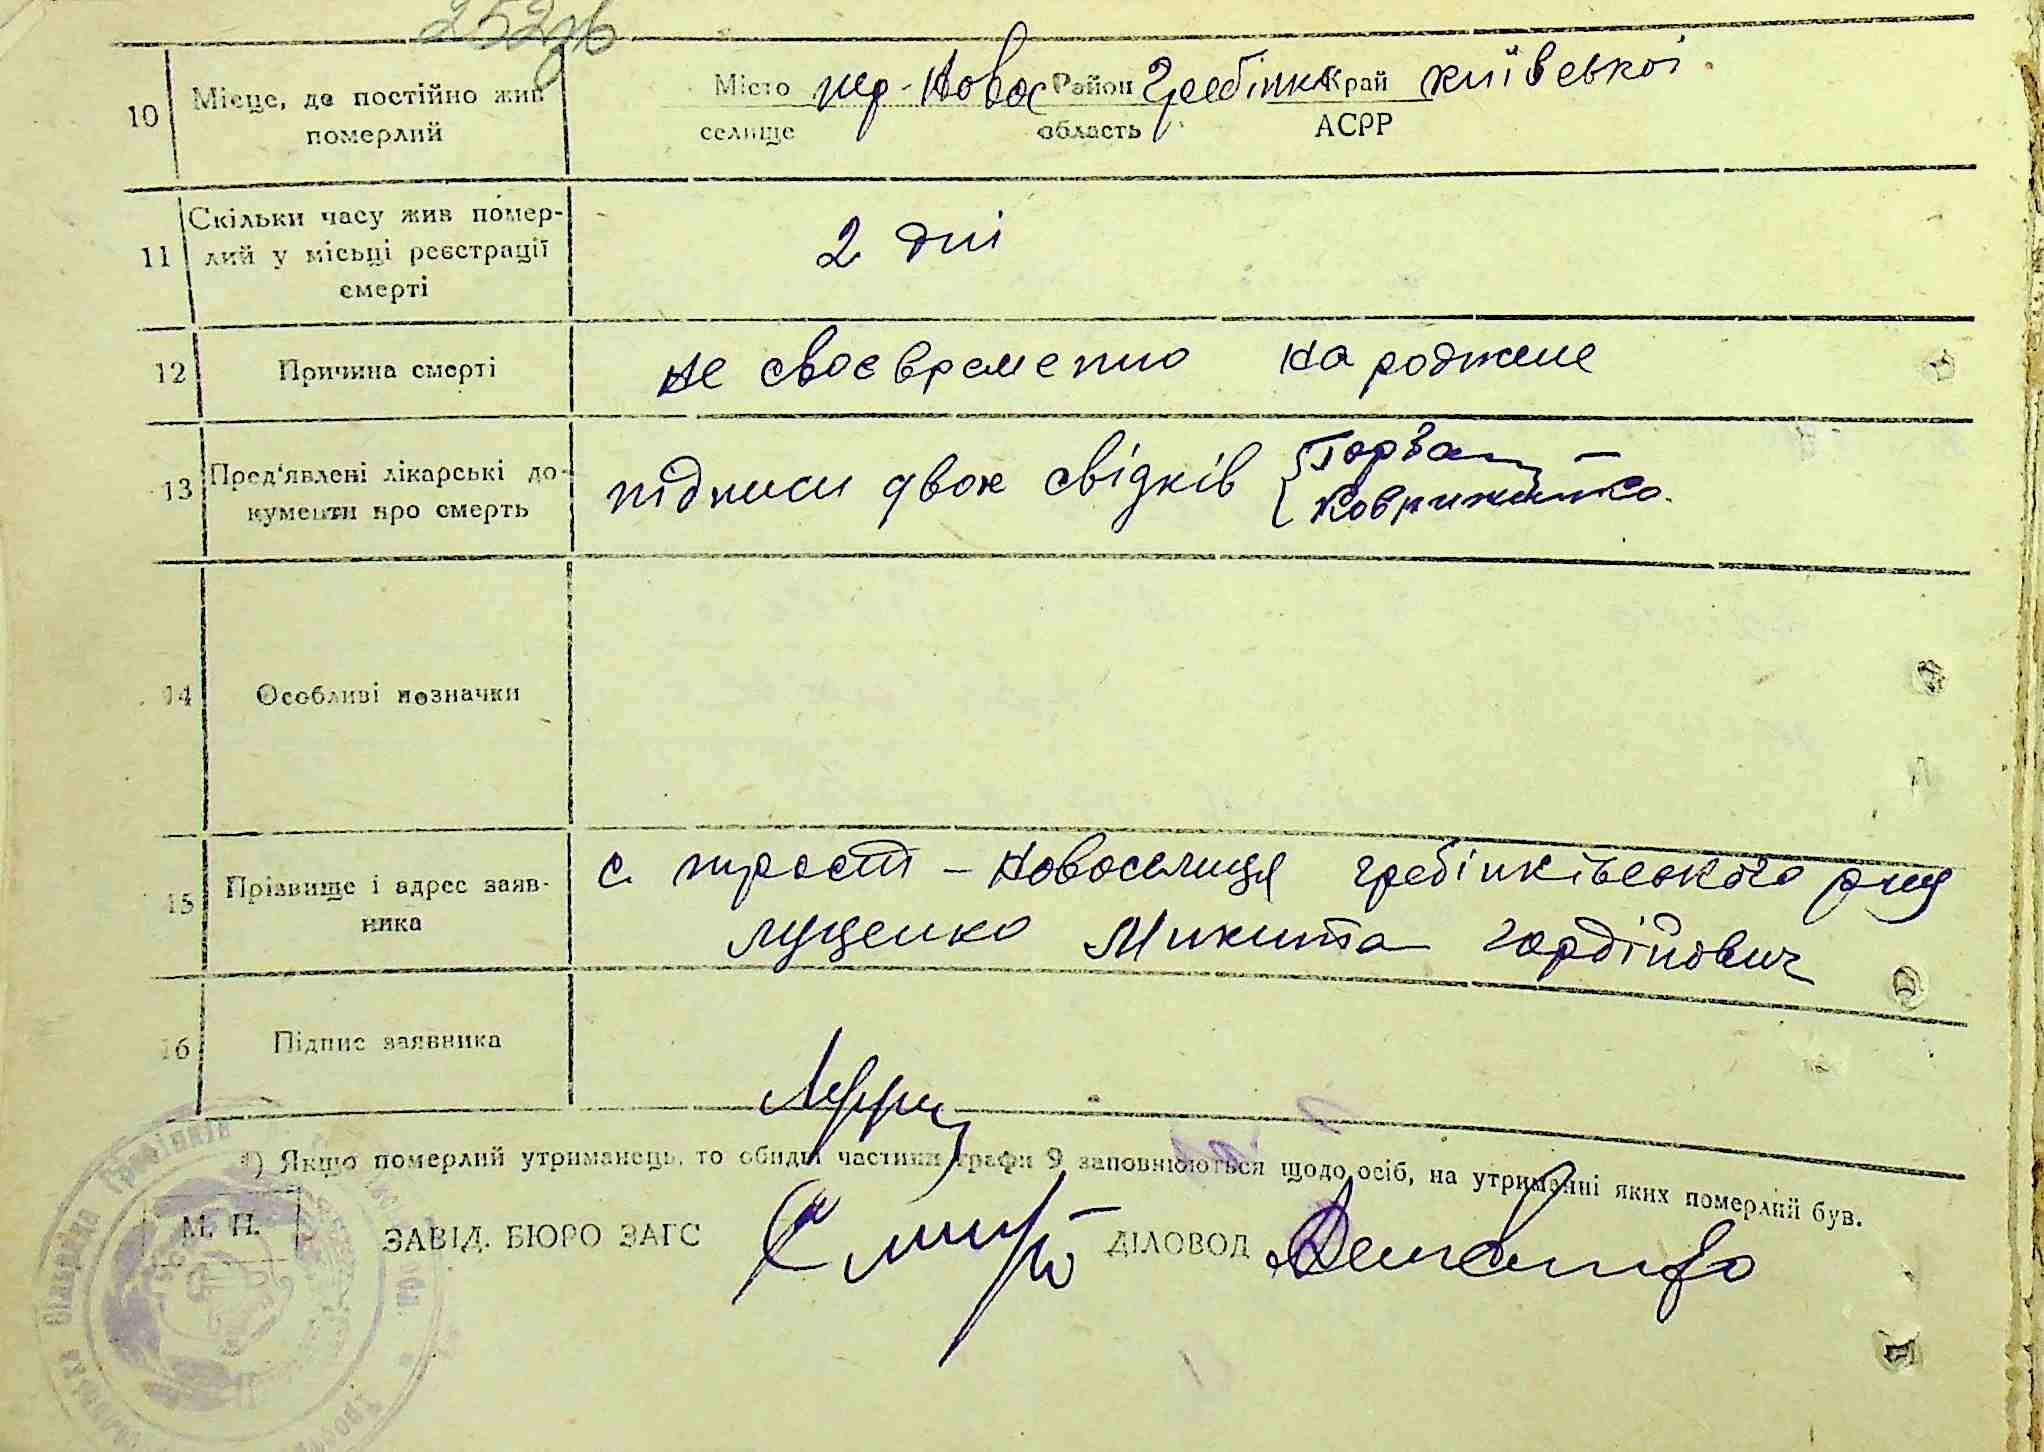 252зв
10 Місце, де постійно жив померлий
Місто пер-Новос Район Гребінка Край київської
селище область АСРР
11 Скільки часу жив помер-
лий у місьці реєстрації
смерті
2 дні
12 Причина смерті
не своєвременно народжене
13 Пред'явлені лікарські до-
кументи про смерть
підписи двох свідків
14 Особливі позначки
15 Прізвище і адрес заяв-
ника
с. прост-Новоселиця гребінківського р-ну
луценко Микита гордійович
16 Підпис заявника
¹) Якщо померлий утриманець, то обидві частини графи 9 заповнюються щодо осіб, на утриманні яких померлий був.
М. П.
ЗАВІД. БЮРО ЗАГС
ДІЛОВОД